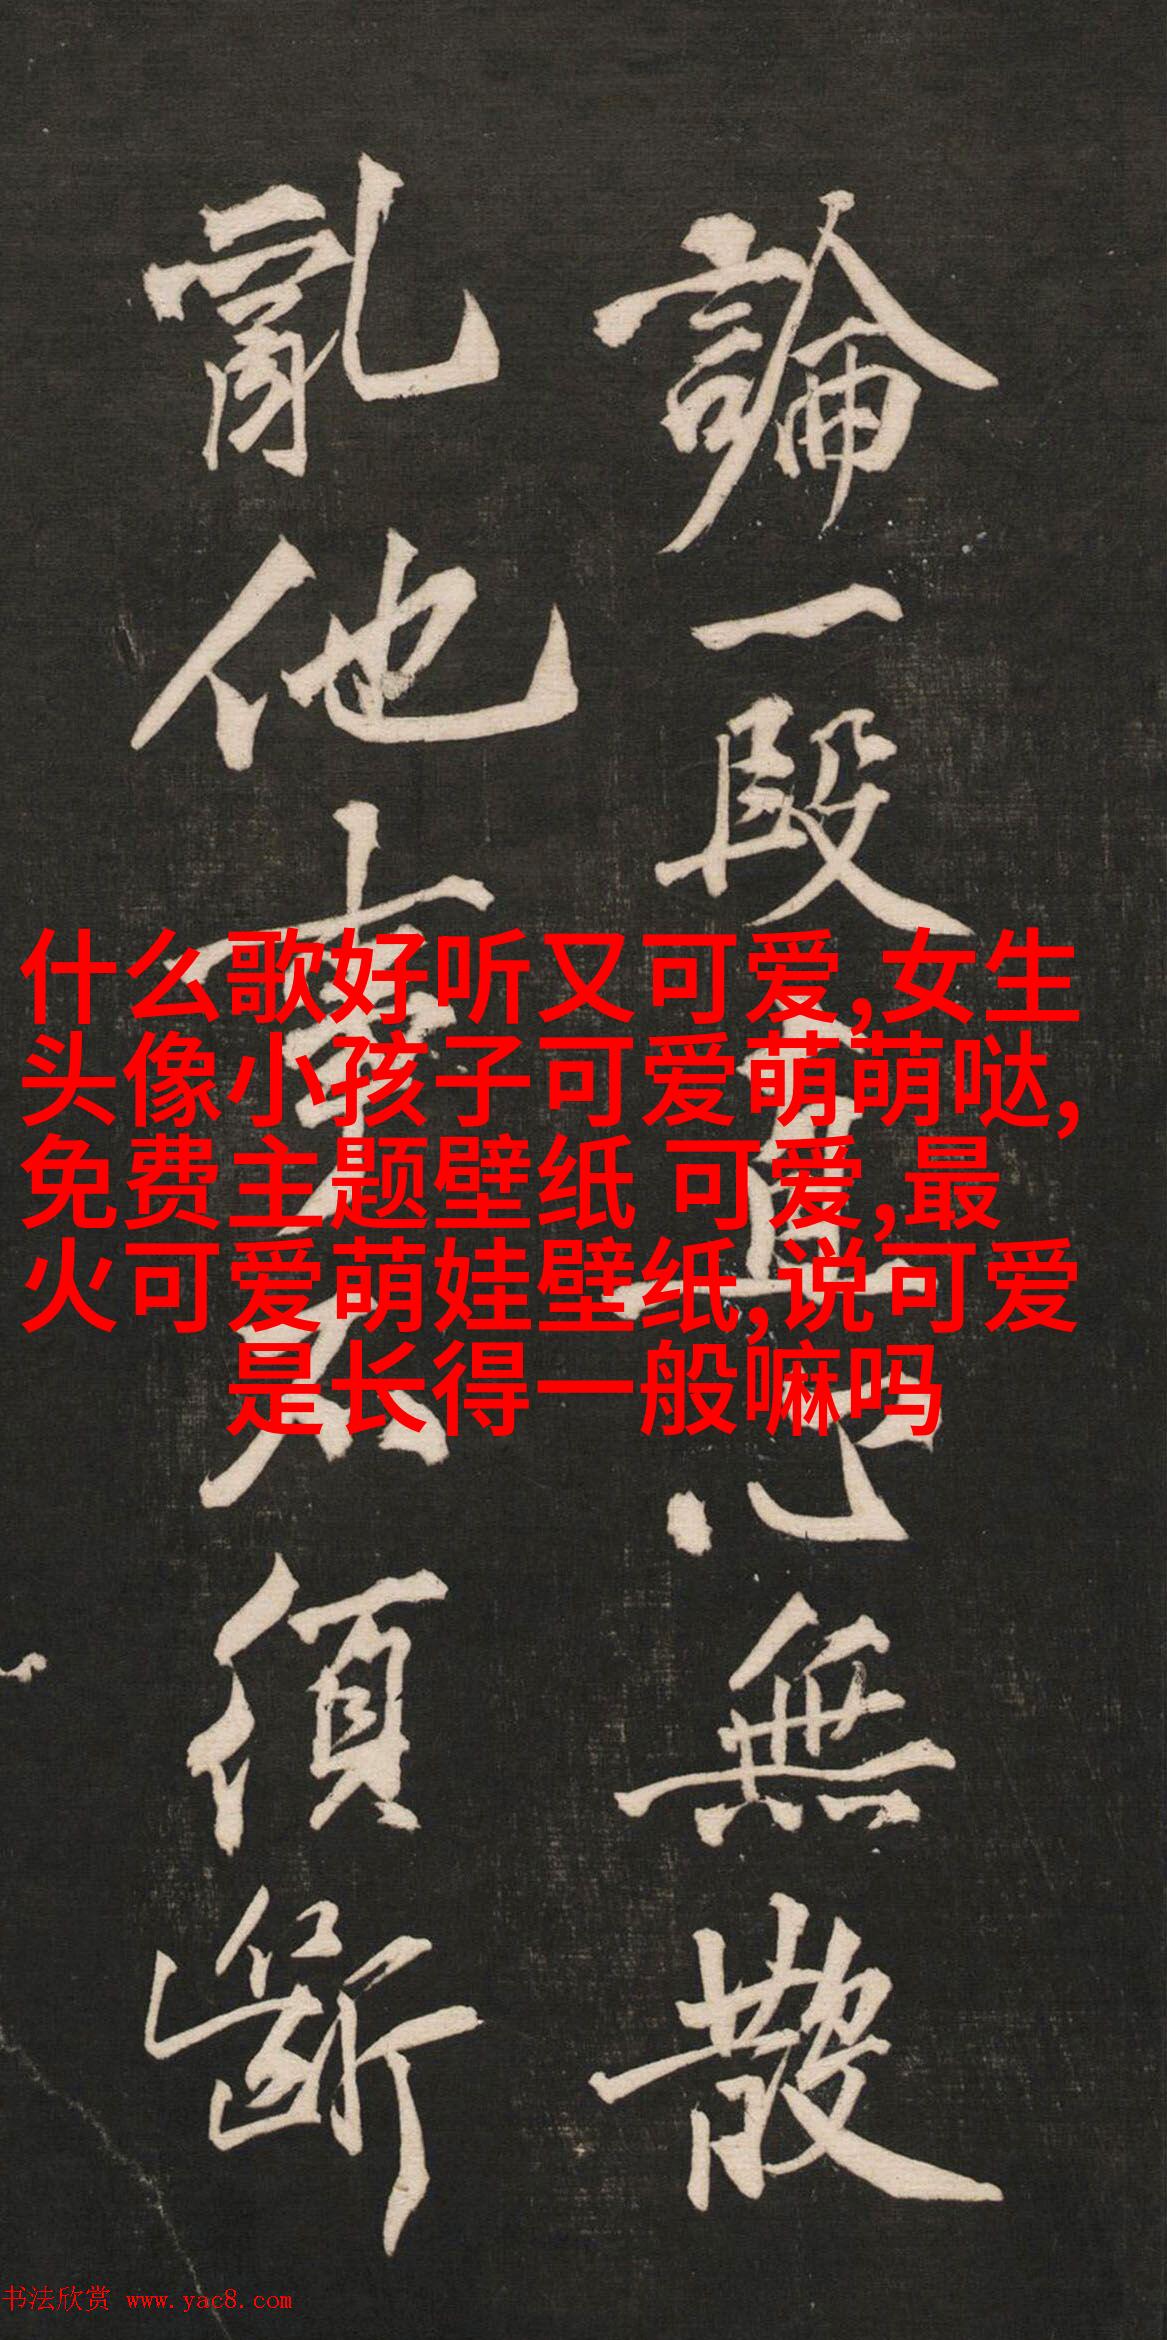 論一段真心無散
亂他事須斷
什么歌好听又可爱,女生
头像小孩子可爱萌萌哒,
免费主题壁纸 可爱,最
火可爱萌娃壁纸,说可爱
是长得一般嘛吗
书法欣赏 www.yac8.com